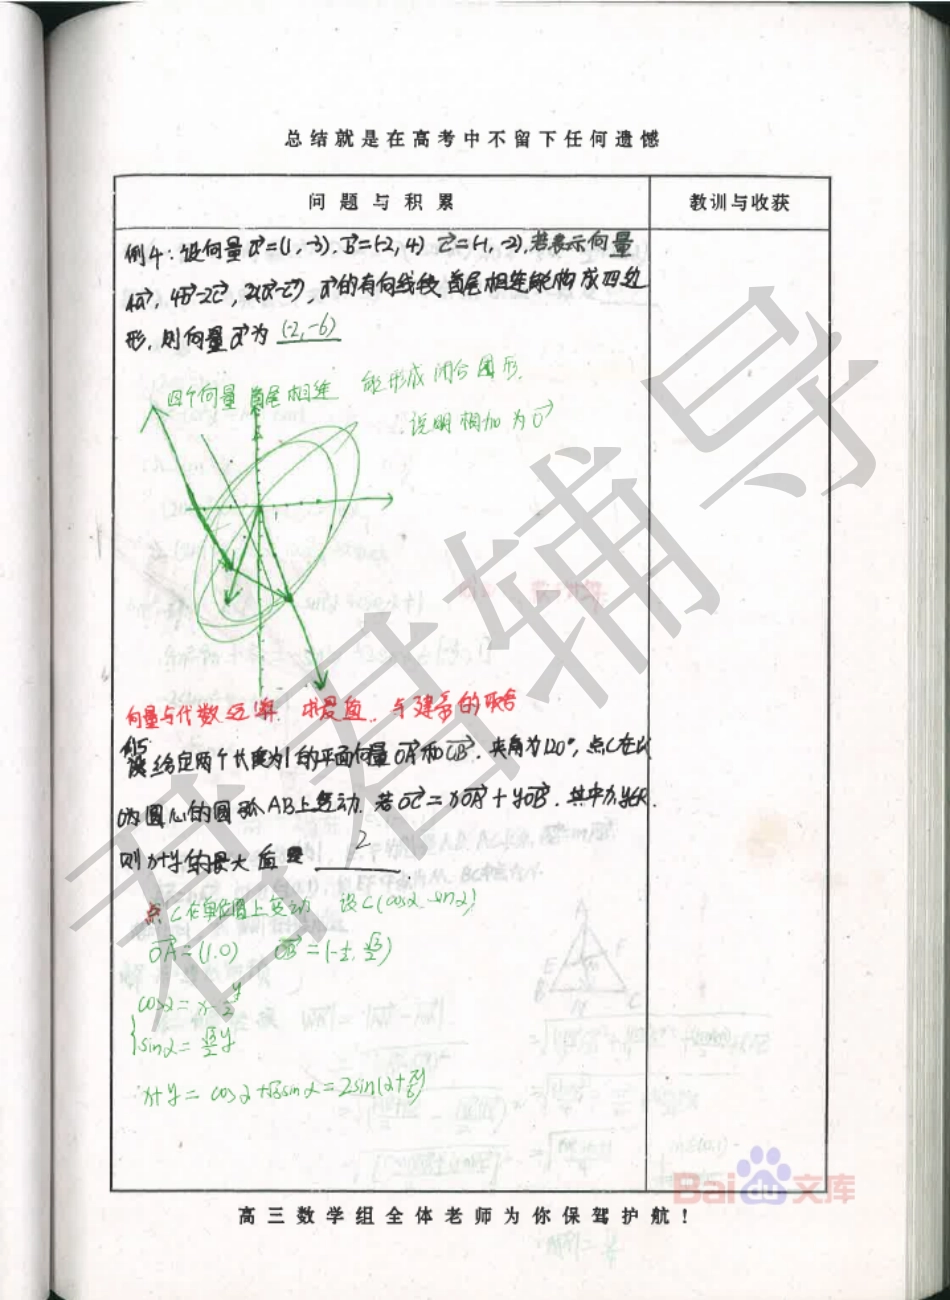 总结就是在高考中不留下任何遗憾
问题与积累
教训与收获
例4:设向量a⃗=(1,-3),b⃗=(-2,4) c⃗=(-1,-2),若表示向量
4a⃗,4b⃗-2c⃗,2(a⃗-c⃗),d⃗的有向线段首尾相连能构成四边
形,则向量d⃗为 (-2,-6)
四个向量首尾相连 能形成闭合图形,
说明相加为0⃗
向量与代数运算,求最值,与建系的联合
例5
给定两个长度为1的平面向量OA⃗和OB⃗,夹角为120°,点C在以
O为圆心的圆弧AB上变动.若OC⃗=xOA⃗+yOB⃗,其中x,y∈R.
则x+y的最大值是 2 .
点C在单位圆上变动 设C(cosα,sinα)
OA⃗=(1,0) OB⃗=(-1/2,√3/2)
cosα=x-y/2
sinα=√3/2y
∴x+y=cosα+√3sinα=2sin(α+π/6)
Bai du 文库
高三数学组全体老师为你保驾护航!
君君辅导